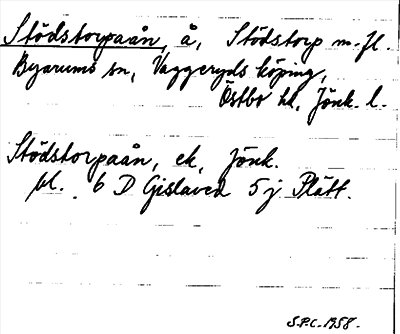 Stödstorpaån, å, Stödstorp m.fl.
Byarums sn, Vaggeryds köping,
Östbo hd, Jönk. l.
Stödstorpaån, ek, Jönk.
bl. 6 D Gislaved 5 j Plätt.
S.P.C. 1958.